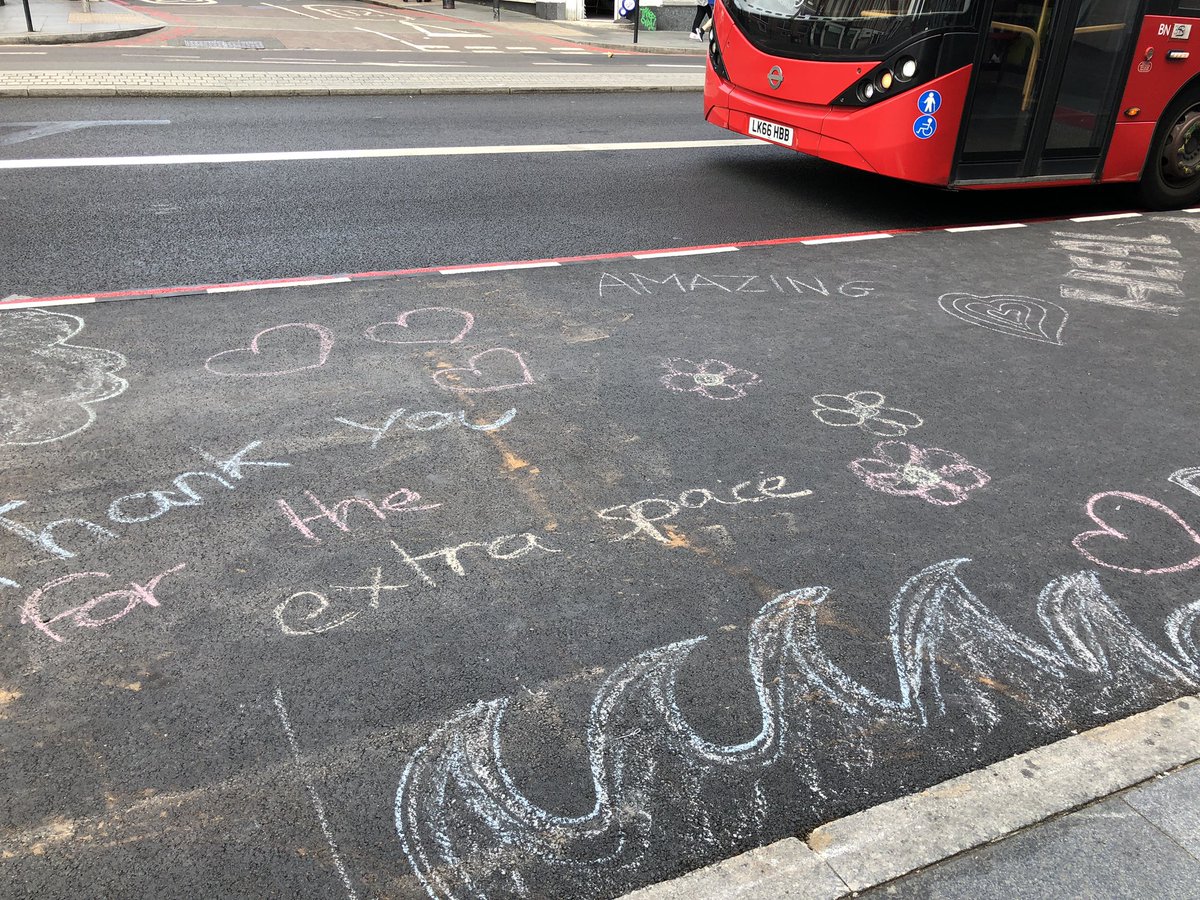 BN
LK66 HBB
AMAZING
Thank you
for the
extra space